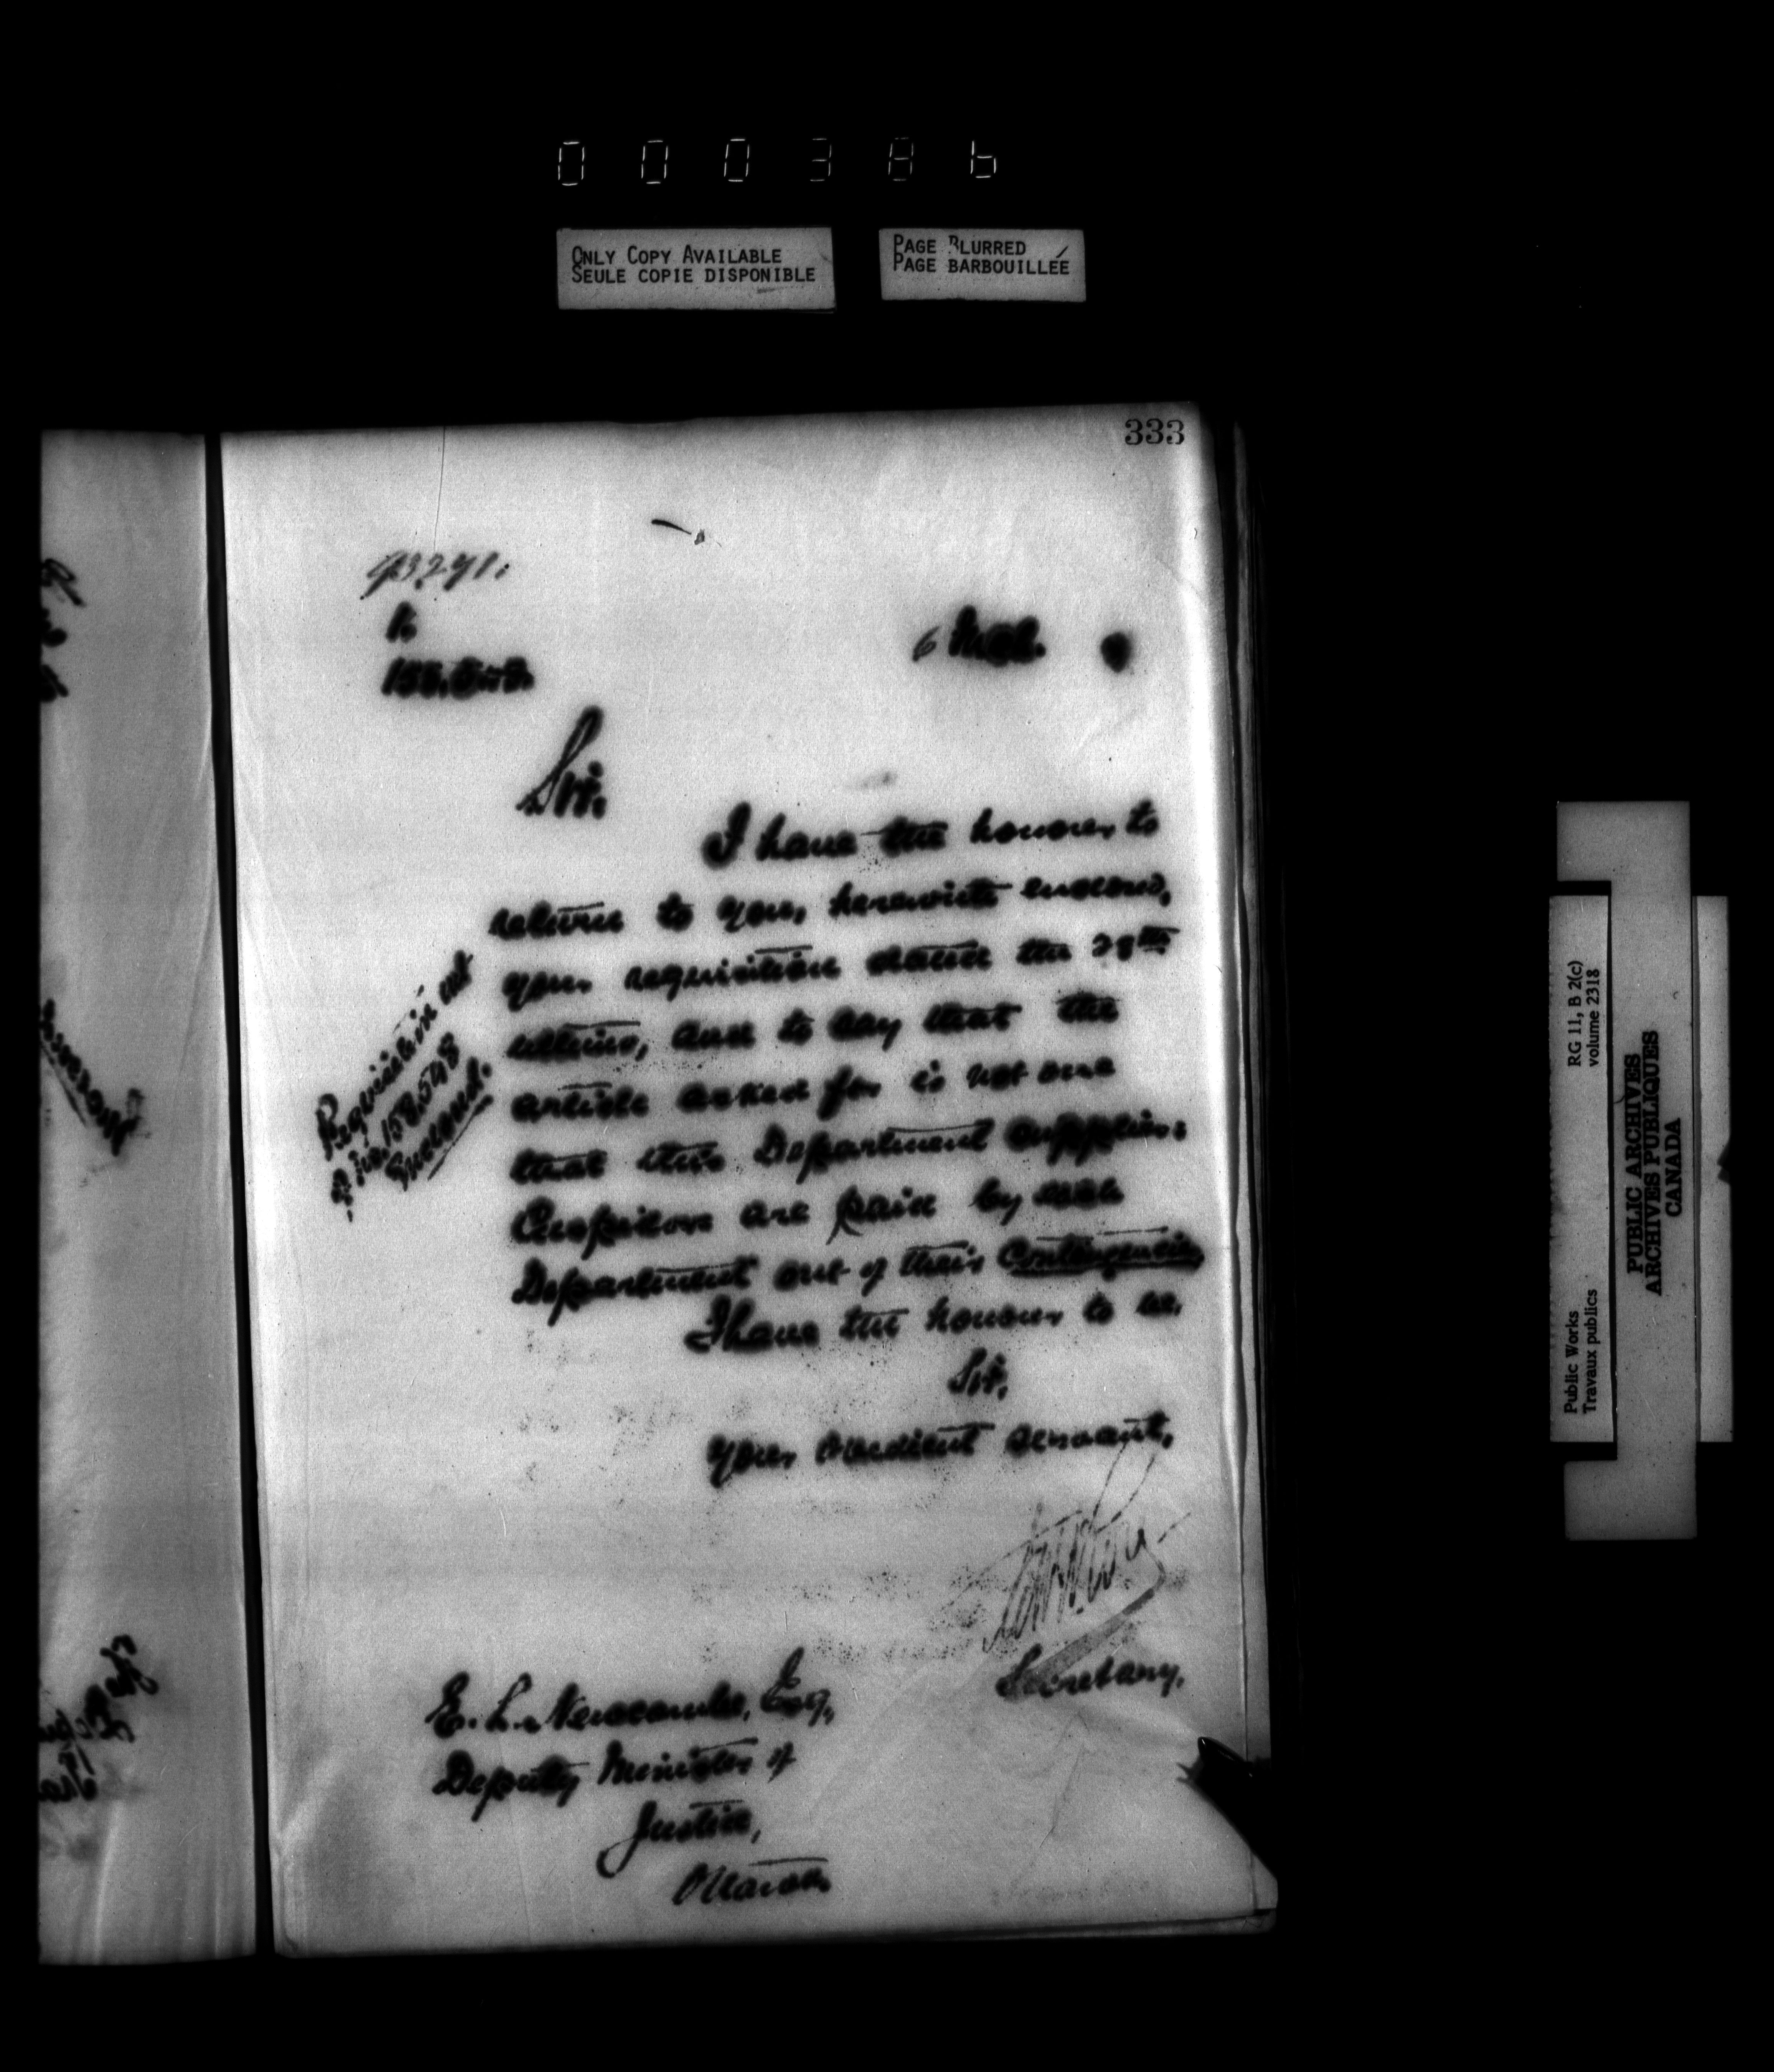 000386
ONLY COPY AVAILABLE
SEULE COPIE DISPONIBLE
PAGE BLURRED
PAGE BARBOUILLÉE
333
93291.
to
158.548.
6 Mch.
Sir.
I have the honour to
return to you, herewith enclosed,
your requisition dated the 28th
ultimo, and to say that the
article asked for is not one
that this Department supplies:
Cuspidors are paid by each
Department out of their Contingencies
I have the honour to be.
Sir,
your obedient servant,
Secretary.
Requisition out
of No. 158,548
Enclosed.
E. L. Newcombe, Esq,
Deputy Minister of
Justice,
Ottawa.
RG 11, B 2(c)
volume 2318
Public Works
Travaux publics
PUBLIC ARCHIVES
ARCHIVES PUBLIQUES
CANADA